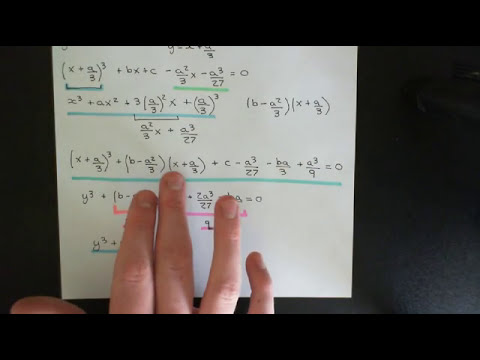 y = x + a/3
(x + a/3)³ + bx + c - a²/3 x - a³/27 = 0
x³ + ax² + 3(a/3)² x + (a/3)³ (b - a²/3)(x + a/3)
a²/3 x + a³/27
(x + a/3)³ + (b - a²/3)(x + a/3) + c - a³/27 - ba/3 + a³/9 = 0
y³ + (b - + 2a³/27 - ba = 0
q
y³ +